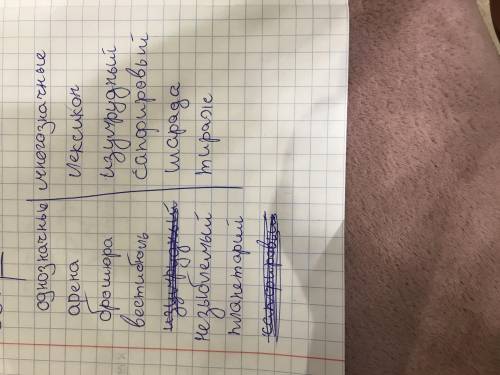 однозначные многозначные
арена лексикон
брошюра изумрудный
вестибюль сапфировый
изумрудный шарада
незыблемый тираж
планетарий
сапфировый